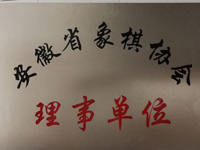 安徽省象棋协会
理事单位